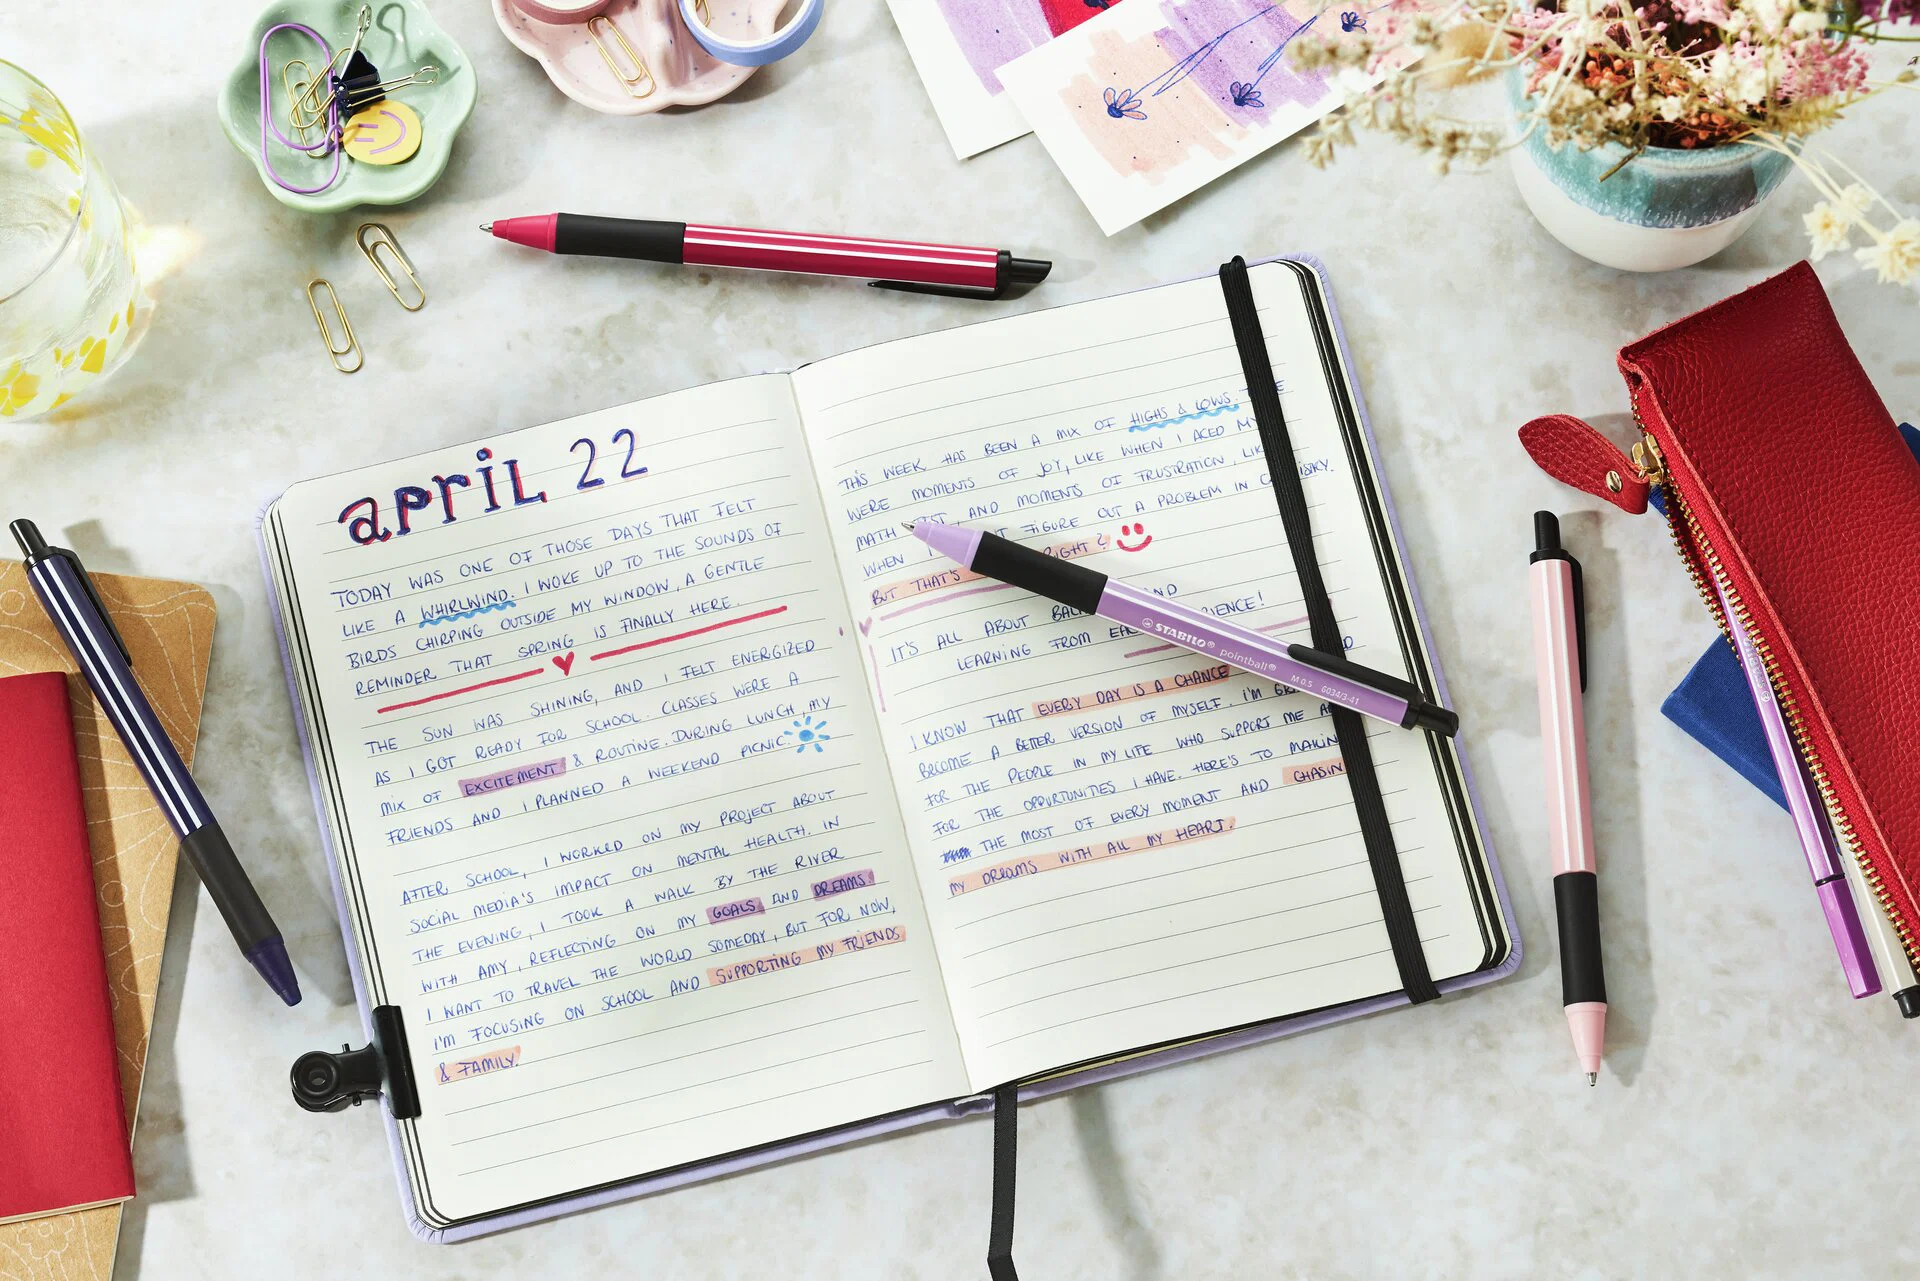 april 22
TODAY WAS ONE OF THOSE DAYS THAT FELT
LIKE A WHIRLWIND. I WOKE UP TO THE SOUNDS OF
BIRDS CHIRPING OUTSIDE MY WINDOW, A GENTLE
REMINDER THAT SPRING IS FINALLY HERE.
THE SUN WAS SHINING, AND I FELT ENERGIZED
AS I GOT READY FOR SCHOOL. CLASSES WERE A
MIX OF EXCITEMENT & ROUTINE. DURING LUNCH, MY
FRIENDS AND I PLANNED A WEEKEND PICNIC.
AFTER SCHOOL, I WORKED ON MY PROJECT ABOUT
SOCIAL MEDIA'S IMPACT ON MENTAL HEALTH. IN
THE EVENING, I TOOK A WALK BY THE RIVER
WITH AMY, REFLECTING ON MY GOALS AND DREAMS.
I WANT TO TRAVEL THE WORLD SOMEDAY, BUT FOR NOW,
I'M FOCUSING ON SCHOOL AND SUPPORTING MY FRIENDS
& FAMILY.
THIS WEEK HAS BEEN A MIX OF HIGHS & LOWS.
WERE MOMENTS OF JOY, LIKE WHEN I ACED MY
MATH AND MOMENTS OF FRUSTRATION,
WHEN I FIGURE OUT A PROBLEM IN
BUT THAT'S RIGHT?
IT'S ALL ABOUT AND
LEARNING FROM
I KNOW THAT EVERY DAY IS A CHANCE
BECOME A BETTER VERSION OF MYSELF. I'M
FOR THE PEOPLE IN MY LIFE WHO SUPPORT ME
FOR THE OPPURTUNITIES I HAVE. HERE'S TO
THE MOST OF EVERY MOMENT AND
MY DREAMS WITH ALL MY HEART.
STABILO® pointball® M 0.5 6034/3-41